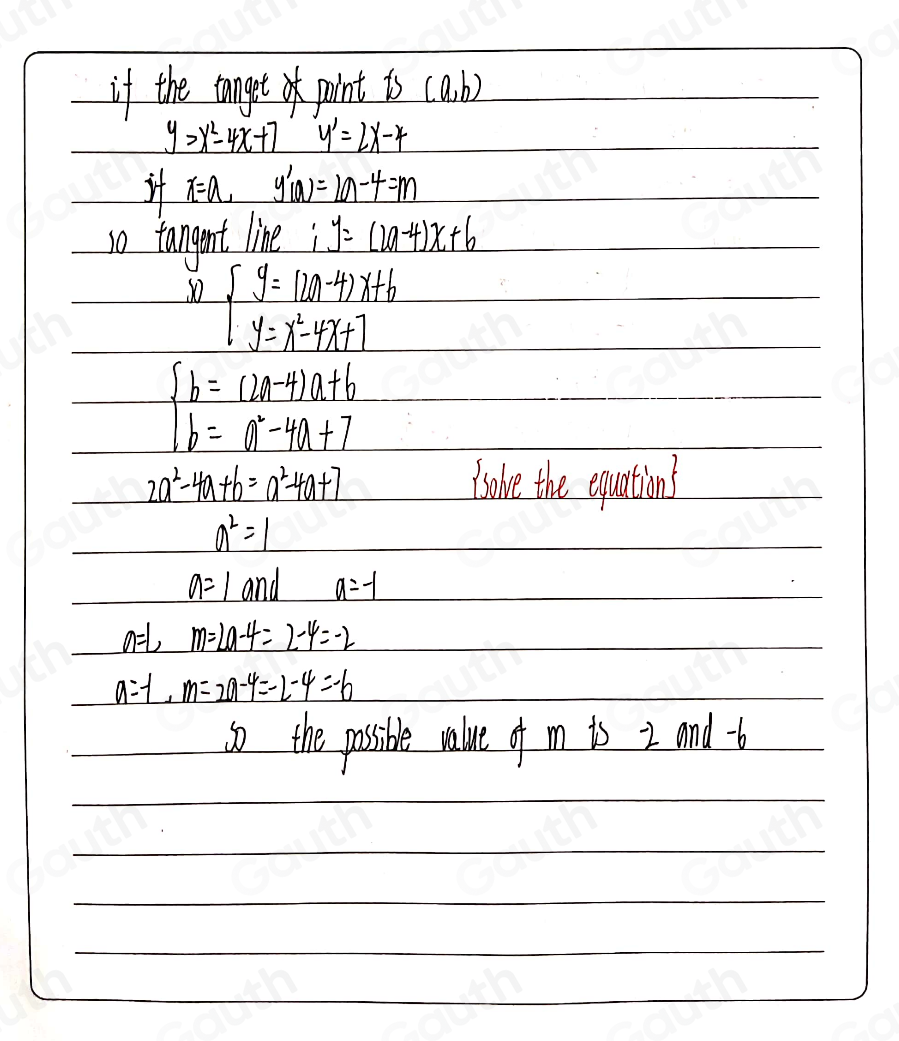 if the tanget of point is (a,b)
y=x²-4x+7 y'=2x-4
if x=a, y'(a)=2a-4=m
so tangent line ; y=(2a-4)x+6
so { y=(2a-4)x+6
y=x²-4x+7
{ b=(2a-4)a+6
b=a²-4a+7
2a²-4a+6=a²-4a+7 {solve the equation}
a²=1
a=1 and a=-1
a=1, m=2a-4=2-4=-2
a=-1, m=2a-4=-2-4=-6
so the possible value of m is -2 and -6
Gauth